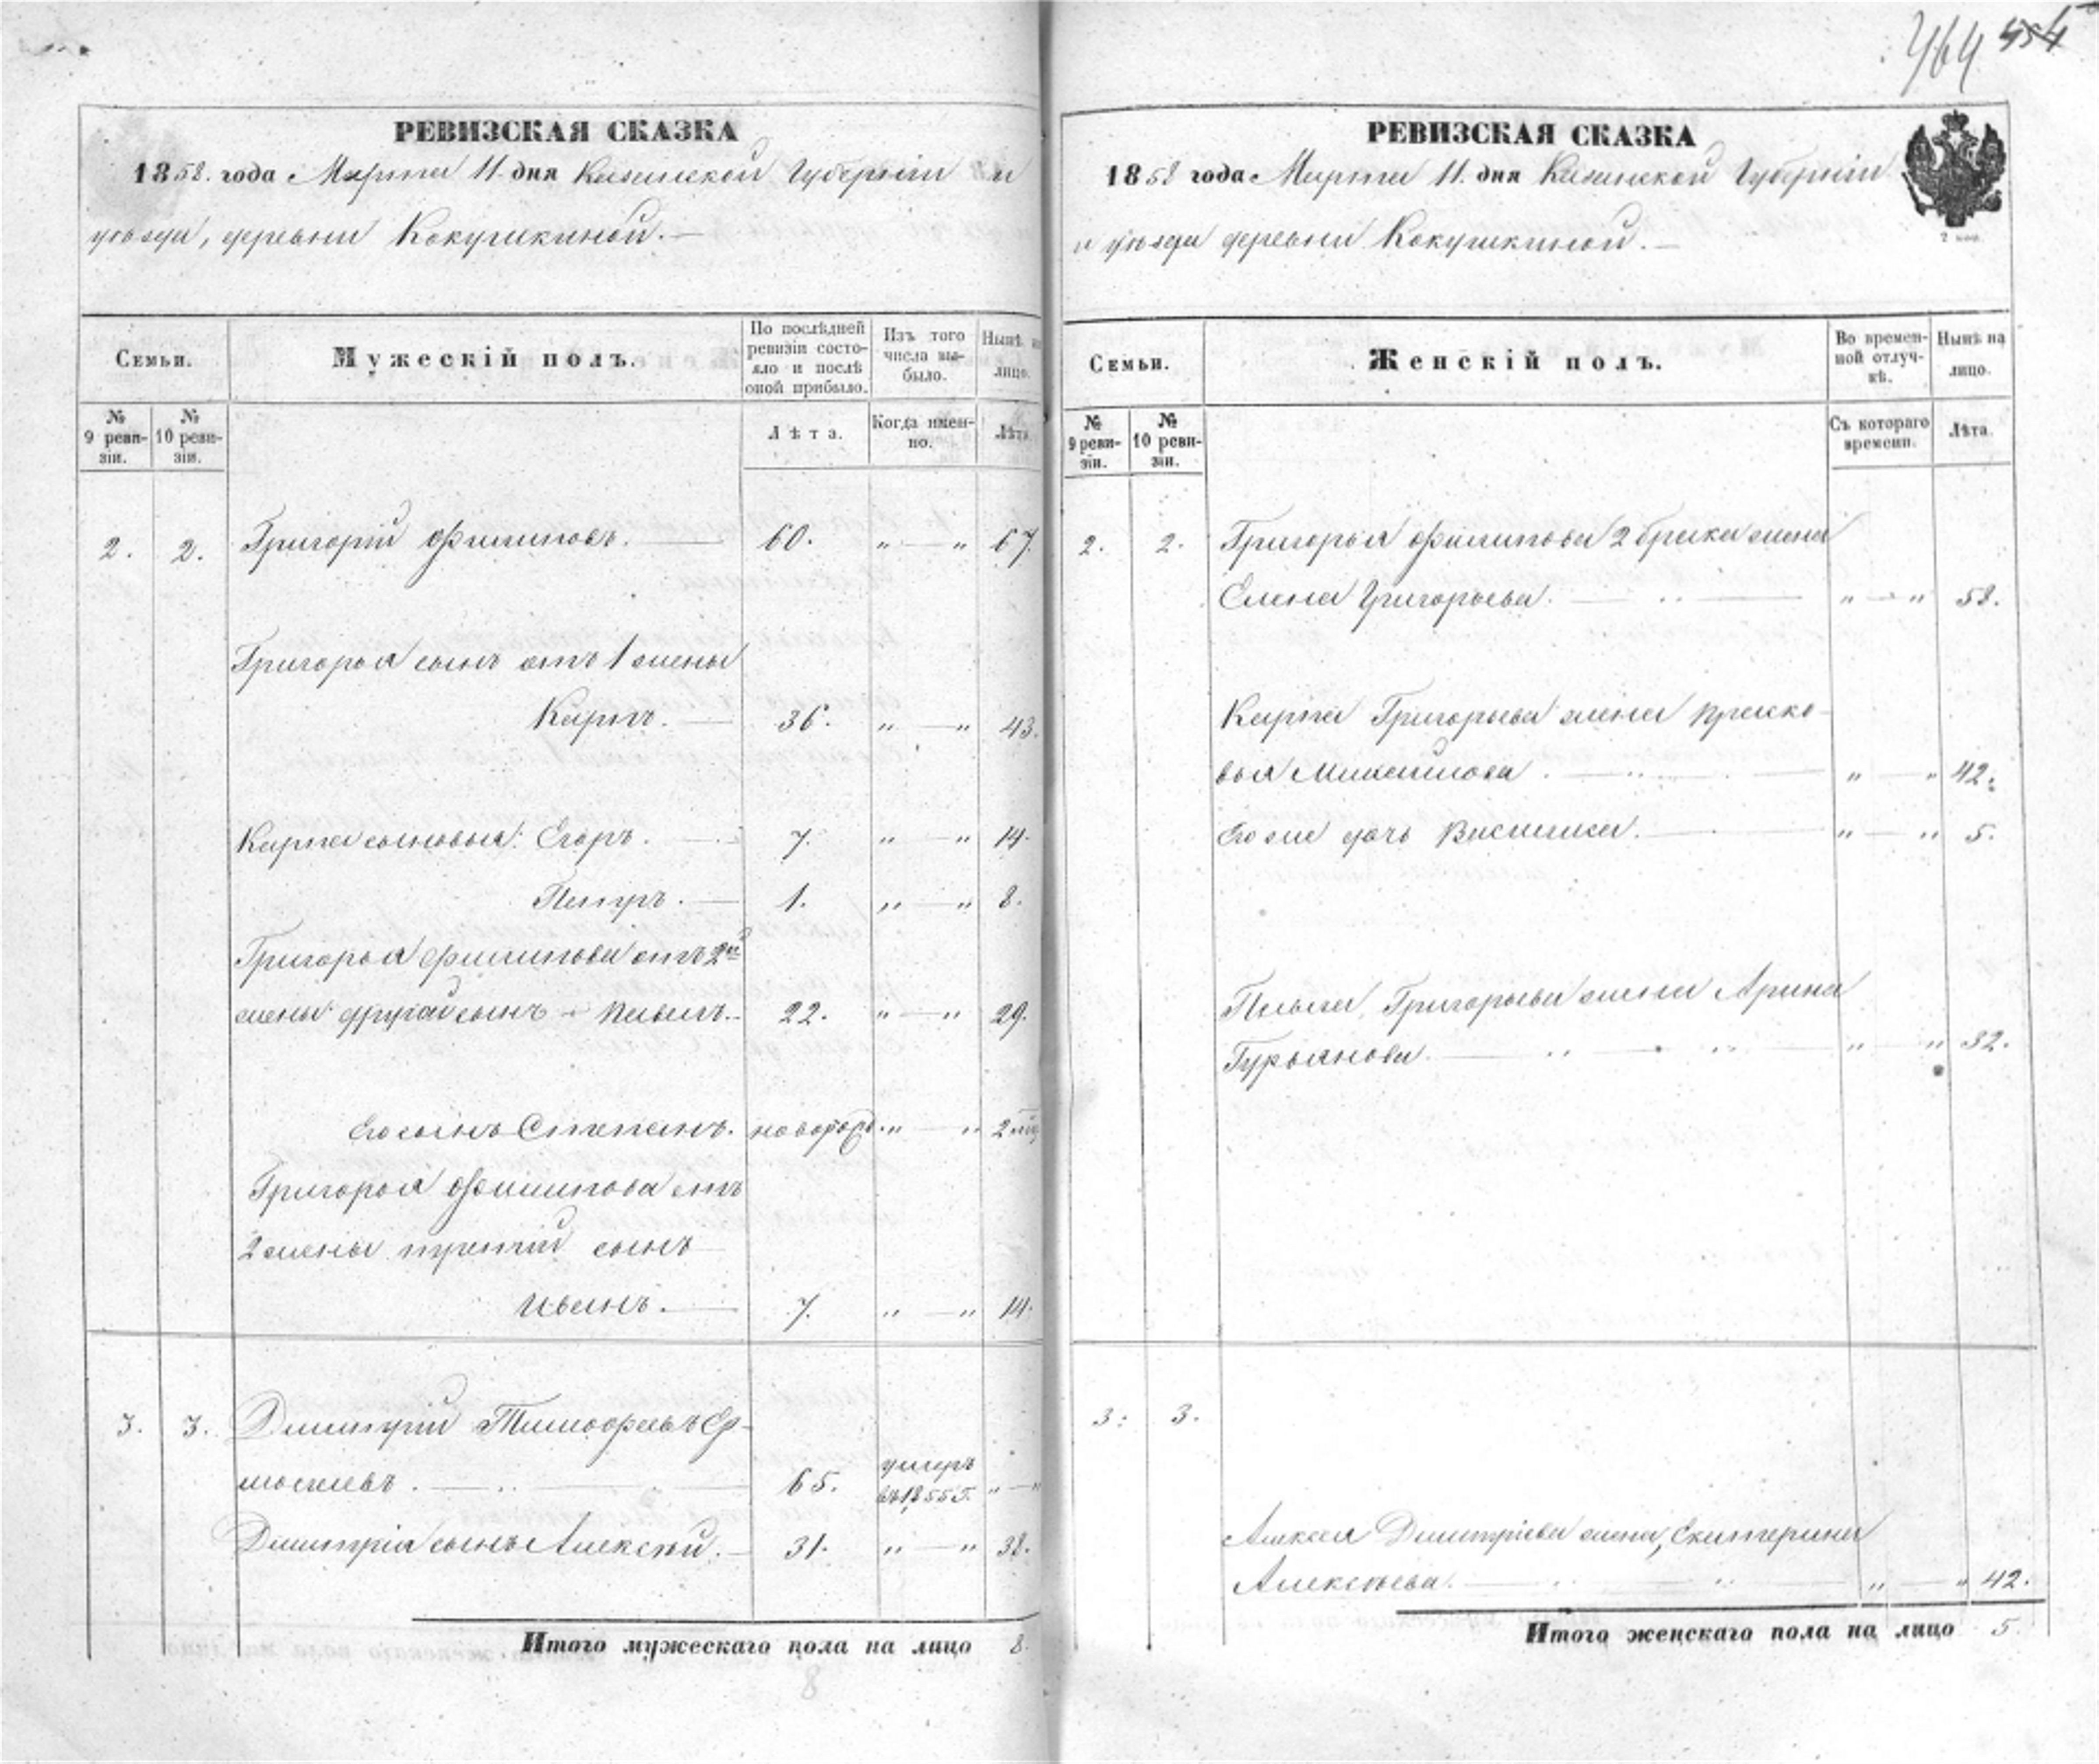 464 454
РЕВИЗСКАЯ СКАЗКА
1858. года Марта 11. дня Казанской Губерніи и
уѣзда, деревни Кокушкиной.—
Семьи.
Мужескій полъ.
По послѣдней ревизіи состояло и послѣ оной прибыло.
Изъ того числа выбыло.
Нынѣ на лицо.
№ 9 ревизіи.
№ 10 ревизіи.
Лѣта.
Когда именно.
Лѣта
2. 2. Григорій Филиповъ. — 60. „ — „ 67.
Григорья сынъ отъ 1 жены
Карпъ. — 36. „ — „ 43.
Карпа сыновья: Егоръ. — 7. „ — „ 14.
Петръ. — 1. „ — „ 8.
Григорья Филипова отъ 2й
жены другой сынъ - Павелъ. 22. „ — „ 29.
Его сынъ Степанъ. новорож. „ — „ 2 мѣ
Григорья Филипова отъ
2 жены третій сынъ
Иванъ. — 7. „ — „ 14.
3. 3. Димитрій Тимофеевъ Ер-
молаевъ. — 65. умеръ въ 1855 г. „ — „
Димитрія сынъ Алексѣй. — 31. „ — „ 38.
Итого мужескаго пола на лицо 8.
8
РЕВИЗСКАЯ СКАЗКА
1858 года Марта 11. дня Казанской Губерніи
и уѣзда деревни Кокушкиной.—
2 коп.
Семьи.
Женскій полъ.
Во временной отлучкѣ.
Нынѣ на лицо.
№ 9 ревизіи.
№ 10 ревизіи.
Съ котораго времени.
Лѣта.
2. 2. Григорья Филипова 2 брака жена
Елена Григорьева. — „ — „ 58.
Карпа Григорьева жена Праско-
вья Михайлова. — „ — „ 42.
Его же дочь Василиса. — „ — „ 5.
Павла Григорьева жена Арина
Гурьянова. — „ — „ 32.
3. 3.
Алексея Димитріева жена, Екатерина
Алексѣева. — „ — „ 42.
Итого женскаго пола на лицо 5.